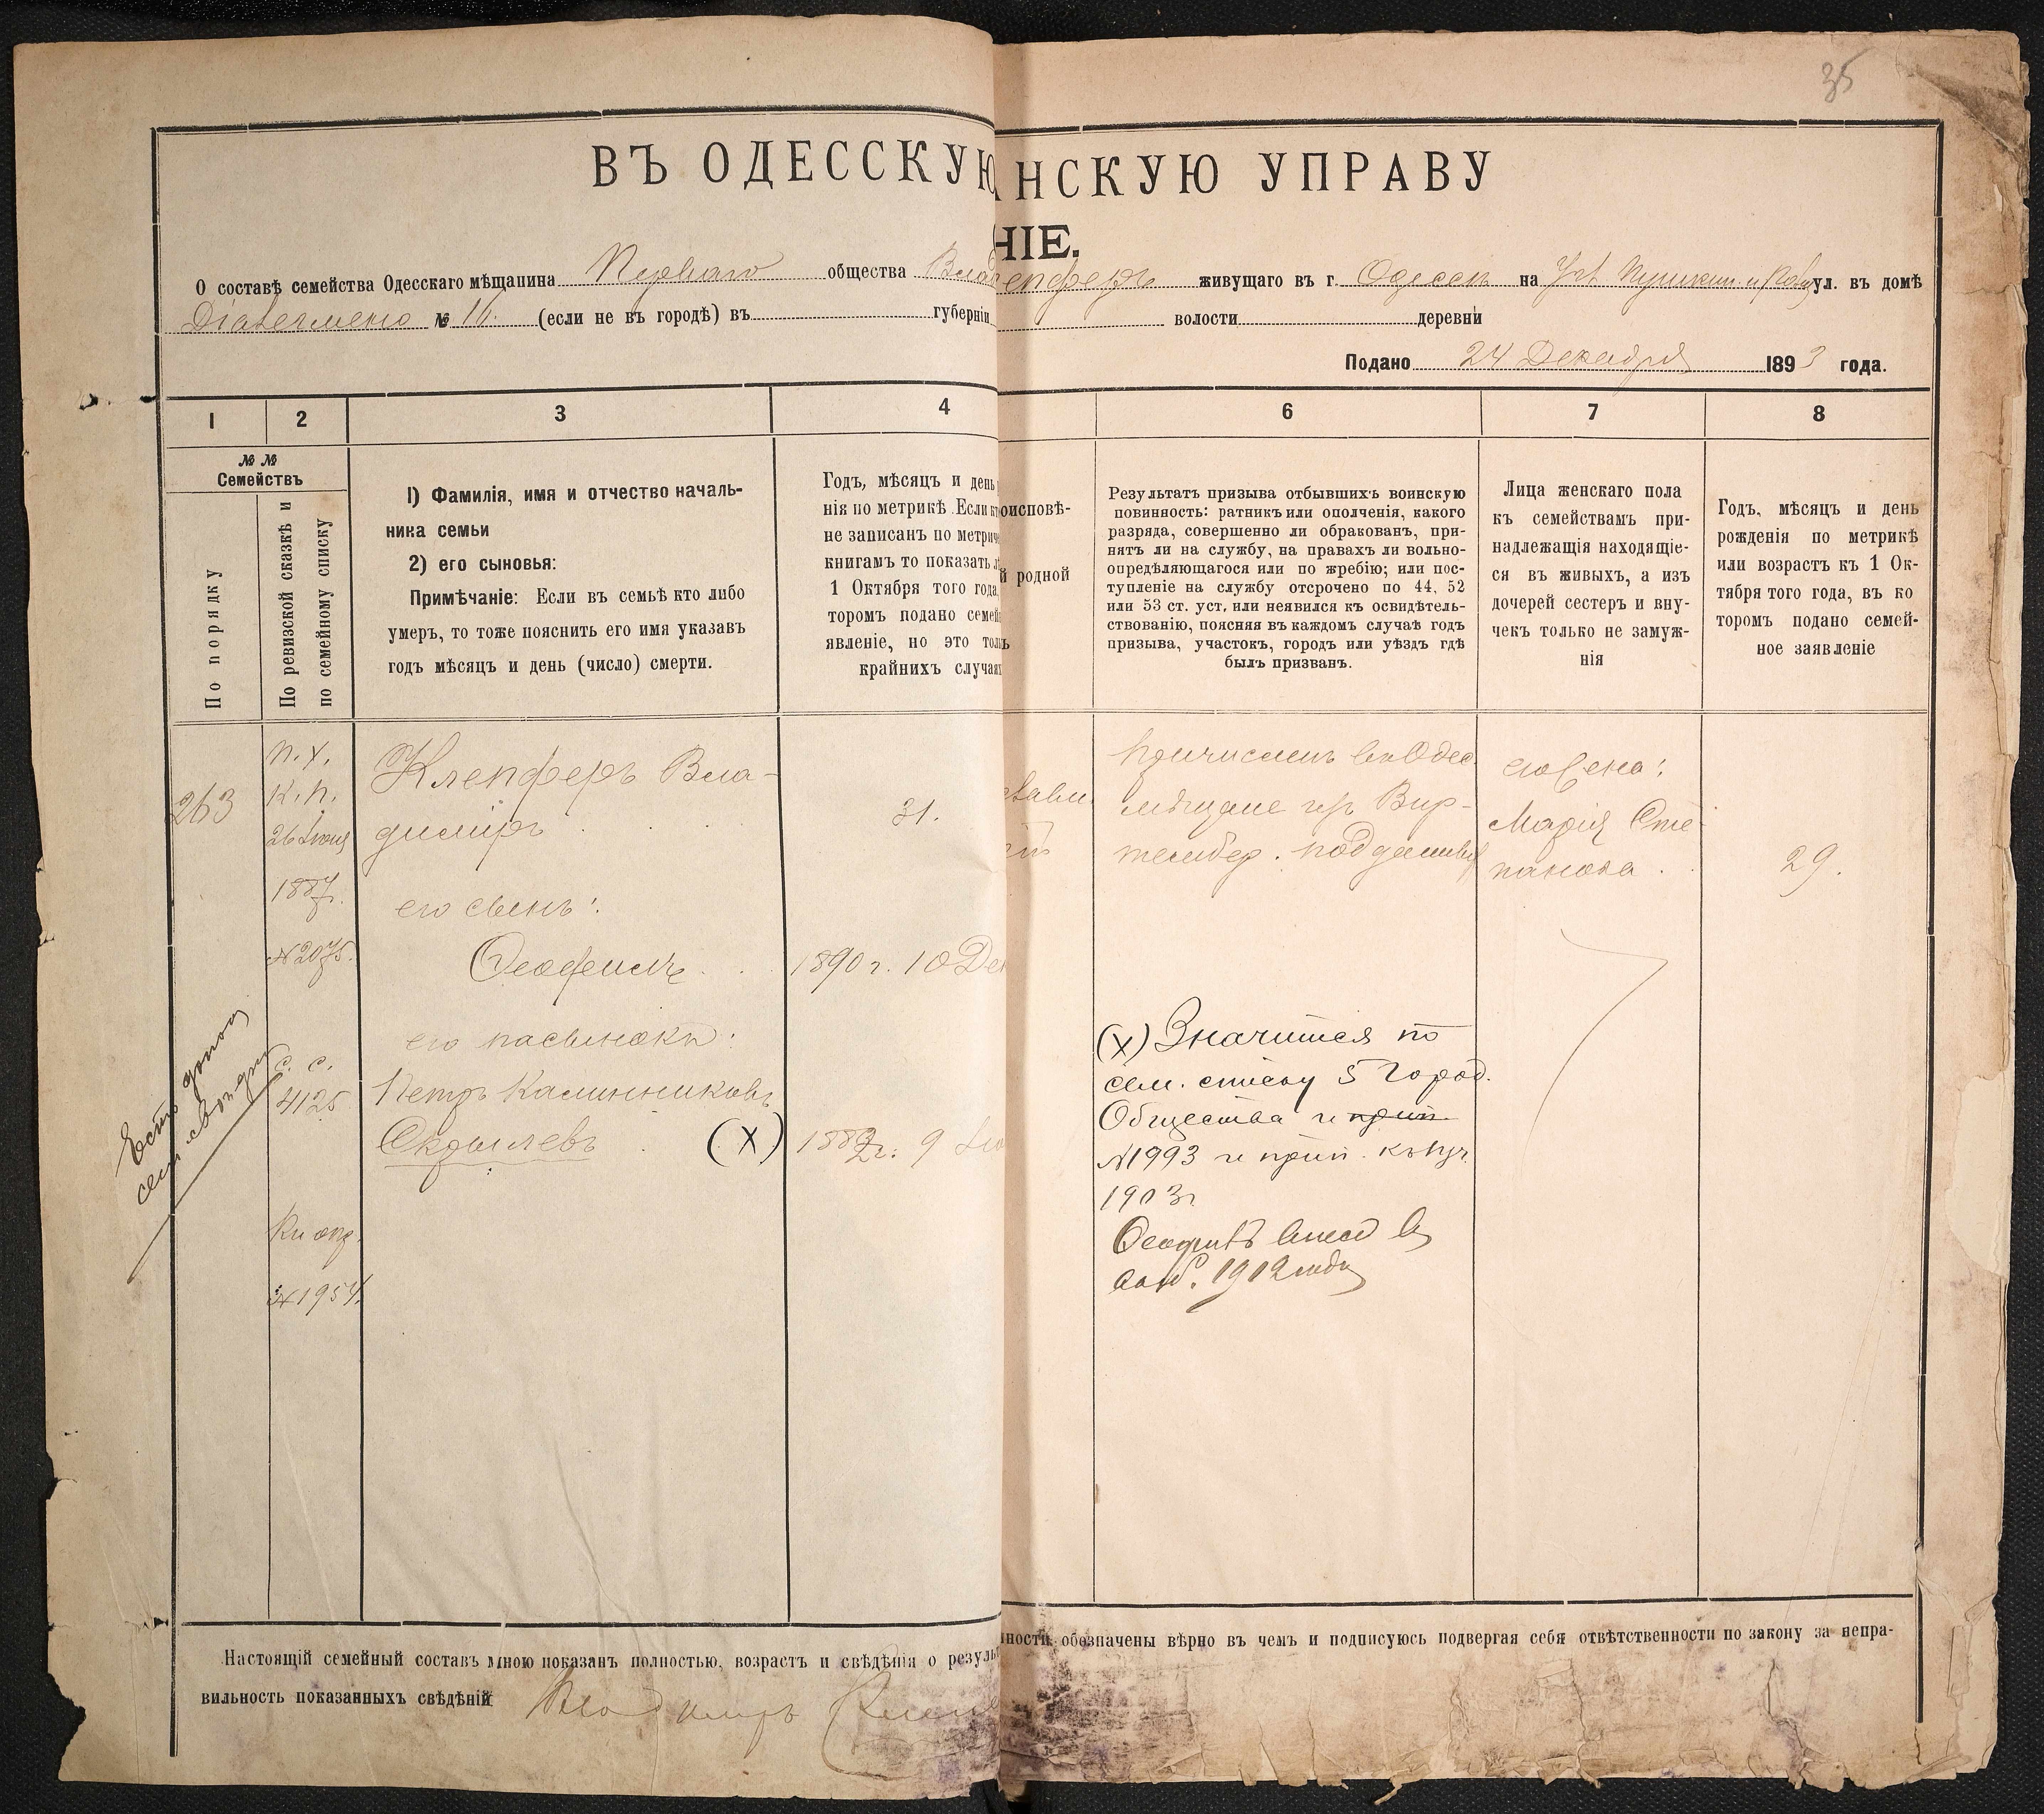 35
ВЪ ОДЕССКУЮ НСКУЮ УПРАВУ
НІЕ.
О составѣ семейства Одесскаго мѣщанина Перваго общества Влад енферъ живущаго въ г. Одессѣ на Уг. Пушкин. и ул. въ домѣ
№ (если не въ городѣ) въ губерніи волости деревни
Подано 24 Декабря 1893 года.
1 2 3 4 6 7 8
№ №
Семействъ
По порядку
По ревизской сказкѣ и
по семейному списку
1) Фамилія, имя и отчество началь-
ника семьи
2) его сыновья:
Примѣчаніе: Если въ семьѣ кто либо
умеръ, то тоже пояснить его имя указавъ
годъ мѣсяцъ и день (число) смерти.
Годъ, мѣсяцъ и день
нія по метрикѣ. Если кт
не записанъ по метрич
книгамъ то показать л
1 Октября того года,
торомъ подано семей
явленіе, но это толь
крайнихъ случая
оисповѣ-
й родной
Результатъ призыва отбывшихъ воинскую
повинность: ратникъ или ополченія, какого
разряда, совершенно ли обракованъ, при-
нятъ ли на службу, на правахъ ли вольно-
опредѣляющагося или по жребію; или пос-
тупленіе на службу отсрочено по 44, 52
или 53 ст. уст. или неявился къ освидѣтель-
ствованію, поясняя въ каждомъ случаѣ годъ
призыва, участокъ, городъ или уѣздъ гдѣ
былъ призванъ.
Лица женскаго пола
къ семействамъ при-
надлежащія находящіе-
ся въ живыхъ, а изъ
дочерей сестеръ и вну-
чекъ только не замуж-
нія
Годъ, мѣсяцъ и день
рожденія по метрикѣ
или возрастъ къ 1 Ок-
тября того года, въ ко
торомъ подано семей-
ное заявленіе
263
п. х.
к. п.
26 Іюня
1887г.
№2075.
с. с.
4125
№1954.
Клепферъ Вла-
диміръ
его сынъ:
Ѳеофилъ
его пасынокъ:
Петръ Калинниковъ
(х)
31.
1890 г. 10 Дек
1882г. 9
Причисленъ въ Одес.
мѣщане изъ Вир-
тембер. подданныхъ
(х) Значится по
сем. списку 5 Город.
Общества и прип.
№1993 и прип. къ уч.
1903г.
Ѳеофилъ внесе в
1912 года
его жена:
Марія Сте-
панова
29.
Есть
сем.
Настоящій семейный составъ мною показанъ полностью, возрастъ и свѣдѣнія о резуль ности обозначены вѣрно въ чемъ и подписуюсь подвергая себя отвѣтственности по закону за непра-
вильность показанныхъ свѣдѣній Владимиръ